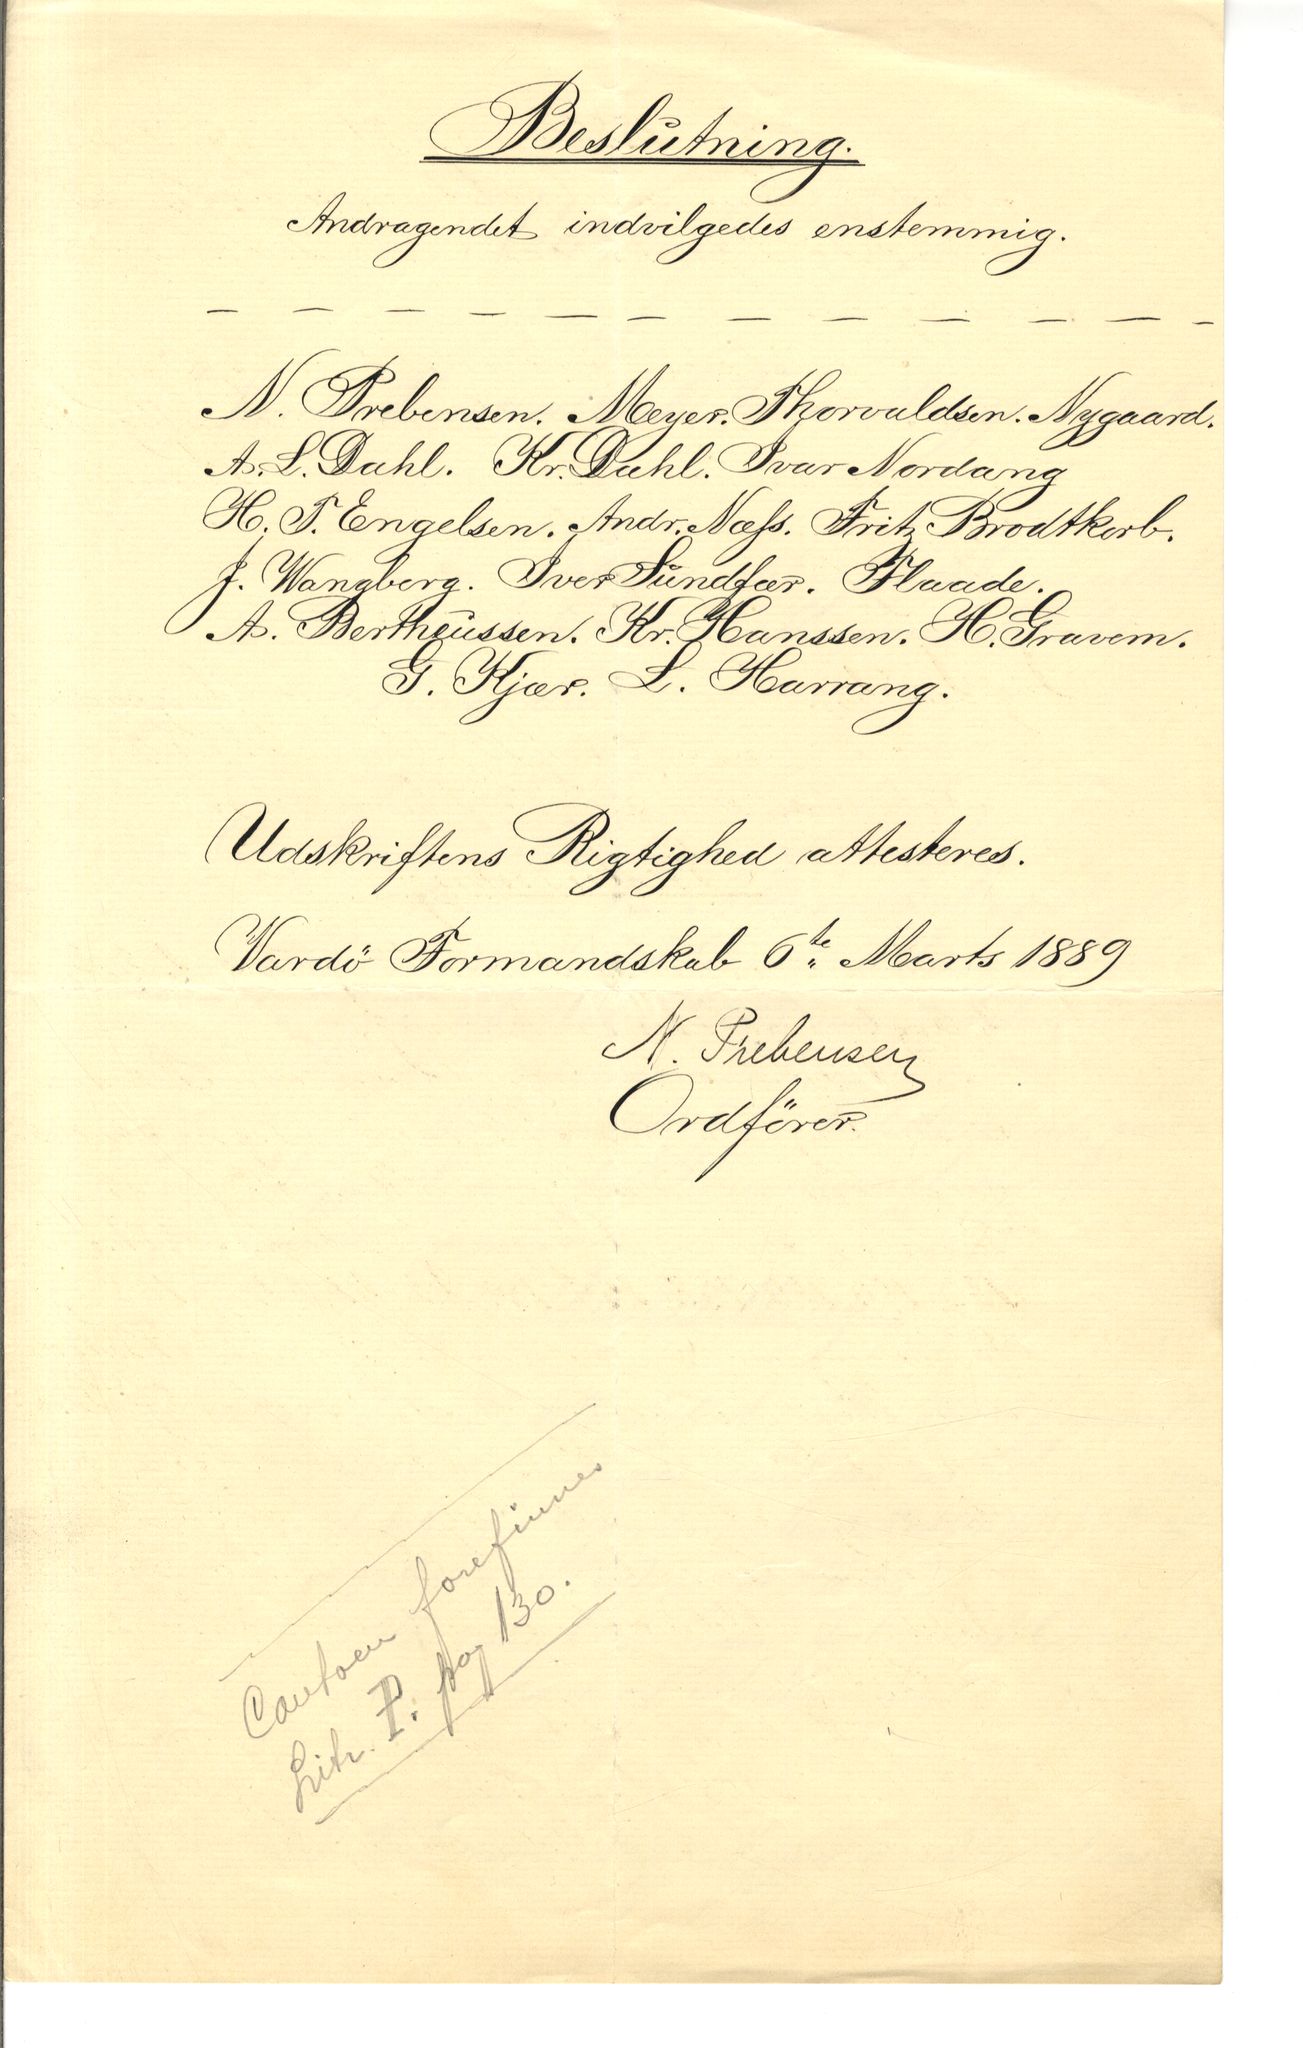 Beslutning.
Andragendet indvilgedes enstemmig.
— — — — — — — — — — — —
N. Prebensen. Meyer. Thorvaldsen. Nygaard.
A. L. Dahl. Kr. Dahl. Ivar Nordang
H. T. Engelsen. Andr. Næss. Fritz Brodtkorb.
J. Wangberg. Iver Sundfær. Flaade.
A. Bertheussen. Kr. Hanssen. H. Gravem.
G. Kjær. L. Harrang.
Udskriftens Rigtighed attesteres.
Vardö Formandskab 6te Marts 1889
N. Prebensen
Ordförer.
forefinnes
Litr. P. pag 130.